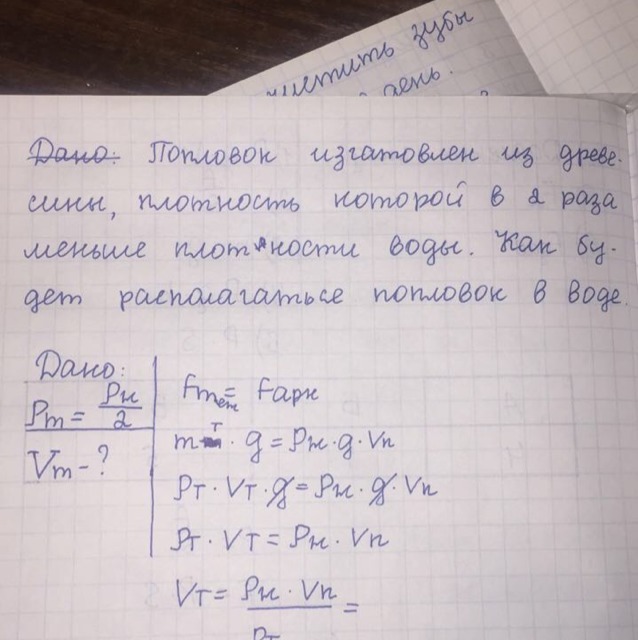 чистить зубы
день.
Дано: Попловок изгатовлен из древе-
сины, плотность которой в 2 раза
меньше плотности воды. Как бу-
дет располагаться попловок в воде.
Дано:
ρт = ρж/2
Vт - ?
Fтяж = Fарх
mт · g = ρж · g · Vп
ρт · Vт · g = ρж · g · Vп
ρт · Vт = ρж · Vп
Vт = ρж · Vп / ρт =